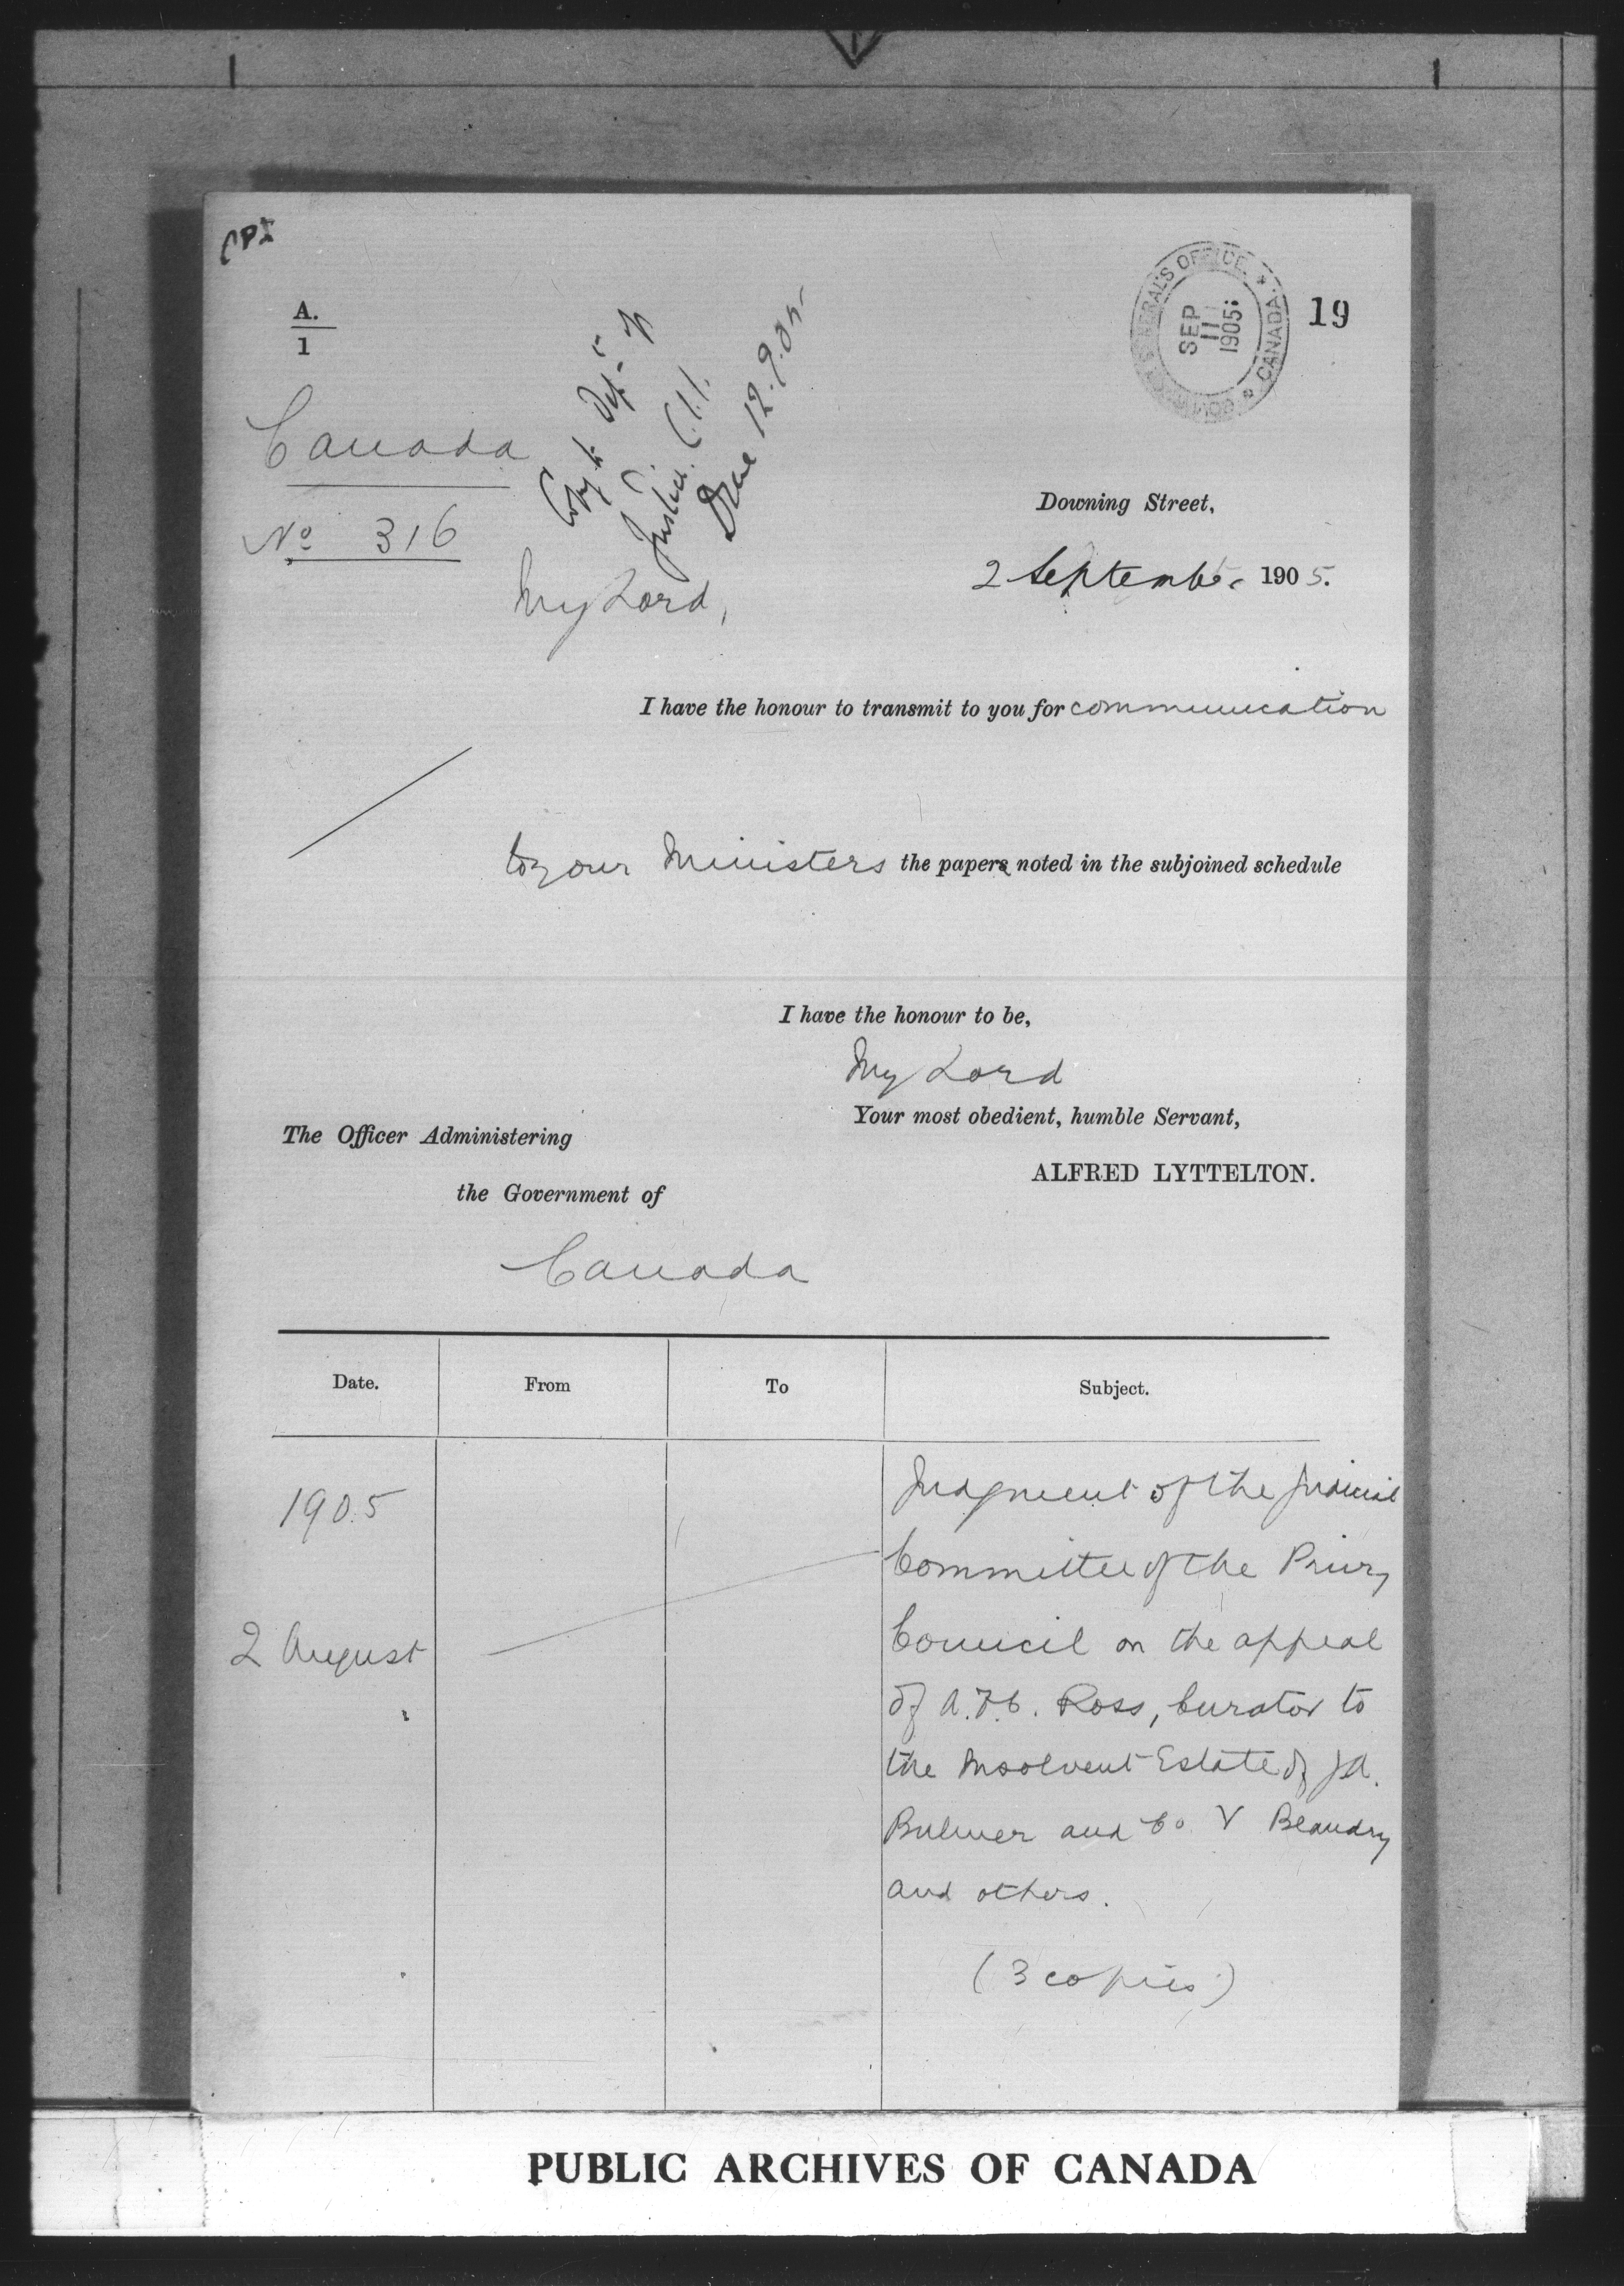 A.
1
Canada
No 316
Copy to Dept. of
Justice.
Done 12.9.05
GOVERNOR GENERAL'S OFFICE * CANADA *
SEP
11
1905
19
Downing Street,
2 September 1905.
My Lord,
I have the honour to transmit to you for communication
to your Ministers the papers noted in the subjoined schedule
I have the honour to be,
My Lord
Your most obedient, humble Servant,
ALFRED LYTTELTON.
The Officer Administering
the Government of
Canada
Date. From To Subject.
1905
2 August
Judgment of the Judicial
Committee of the Privy
Council on the appeal
of A.F.C. Ross, Curator to
the Insolvent Estate of J.A.
Bulmer and Co. V Beaudry
and others.
(3 copies)
PUBLIC ARCHIVES OF CANADA